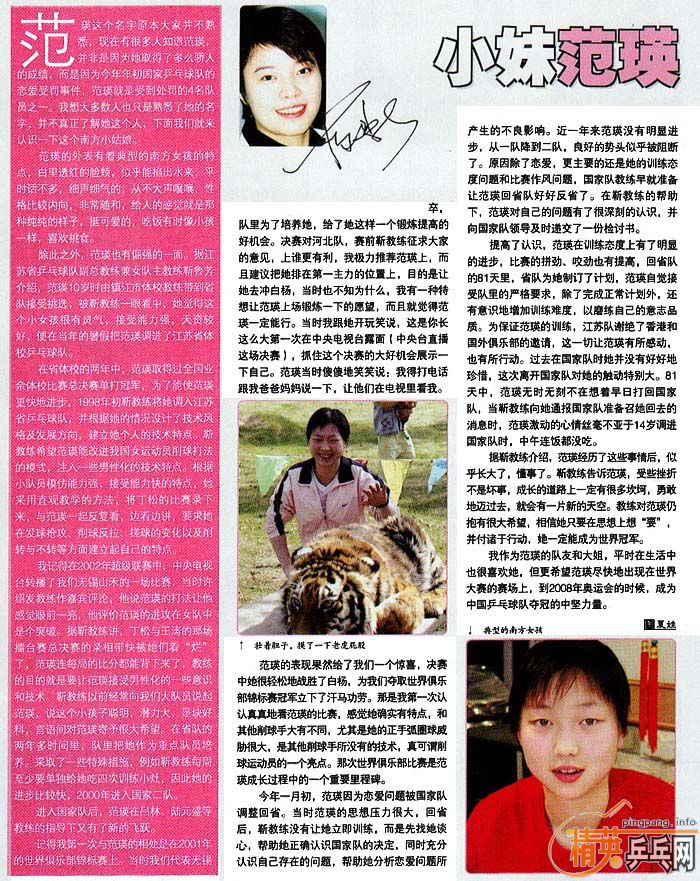 小妹范瑛
范瑛这个名字原本大家并不熟
悉，现在有很多人知道范瑛，
并非是因为她取得了多么骄人
的成绩，而是因为今年年初国家乒乓球队的
恋爱受罚事件，范瑛就是受到处罚的4名队
员之一。我想大多数人也只是熟悉了她的名
字，并不真正了解她这个人，下面我们就来
认识一下这个南方小姑娘。
范瑛的外表有着典型的南方女孩的特
点，白里透红的脸颊，似乎能掐出水来，平
时话不多，细声细气的，从不大声嚷嚷，性
格比较内向，非常随和，给人的感觉就是那
种纯纯的样子，挺可爱的，吃饭有时像小孩
一样，喜欢挑食。
除此之外，范瑛也有倔强的一面。据江
苏省乒乓球队副总教练兼女队主教练靳鲁芳
介绍，范瑛10岁时由镇江市体校教练带到省
队接受挑选，被靳教练一眼看中，她觉得这
个小女孩很有灵气，接受能力强，天资较
好，便在当年的暑假把范瑛调进了江苏省体
校乒乓球队。
在省体校的两年中，范瑛取得过全国业
余体校比赛总决赛单打冠军，为了能使范瑛
更快地进步，1998年初靳教练将她调入江苏
省乒乓球队，并根据她的情况设计了技术风
格及发展方向，建立她个人的技术特点。靳
教练希望范瑛能改进我国女运动员削球打法
的模式，注入一些男性化的技术特点。根据
小队员模仿能力强，接受能力快的特点，她
采用直观教学的方法，将丁松的比赛录下
来，与范瑛一起反复看，边看边讲，要求她
在发球抢攻、削球反拉、搓球的变化以及削
转与不转等方面建立起自己的特点。
我记得在2002年超级联赛中，中央电视
台转播了我们无锡山禾的一场比赛，当时许
绍发教练作嘉宾评论，他说范瑛的打法让他
感觉眼前一亮，他评价范瑛的进攻在女队中
是个突破。据靳教练讲，丁松与王涛的那场
擂台赛总决赛的录相带快被她们看“烂”
了，范瑛连每局的比分都能背下来了，教练
的目的就是要让范瑛接受男性化的一些意识
和技术。靳教练以前经常向我们大队员说起
范瑛，说这个小孩子聪明，潜力大，是块好
料，言语间对范瑛寄予很大希望。在省队的
两年多时间里，队里把她作为重点队员培
养，采取了一些特殊措施，例如靳教练每周
至少要单独给她吃四次训练小灶，因此她的
进步比较快，2000年进入国家二队。
进入国家队后，范瑛在吕林、陆元盛等
教练的指导下又有了新的飞跃。
记得我第一次与范瑛的相处是在2001年
的世界俱乐部锦标赛上。当时我们代表无锡
卒，
队里为了培养她，给了她这样一个锻炼提高的
好机会。决赛对河北队，赛前靳教练征求大家
的意见，上谁更有利，我极力推荐范瑛上，而
且建议把她排在第一主力的位置上，目的是让
她去冲白杨，当时也不知为什么，我有一种特
想让范瑛上场锻炼一下的愿望，而且就觉得范
瑛一定能行。当时我跟她开玩笑说，这是你长
这么大第一次在中央电视台露面（中央台直播
这场决赛），抓住这个决赛的大好机会展示一
下自己。范瑛当时傻傻地笑笑说：我得打电话
跟我爸爸妈妈说一下，让他们在电视里看我。
↑ 壮着胆子，摸了一下老虎屁股
范瑛的表现果然给了我们一个惊喜，决赛
中她很轻松地战胜了白杨，为我们夺取世界俱乐
部锦标赛冠军立下了汗马功劳。那是我第一次认
认真真地看范瑛的比赛，感觉她确实有特点，和
其他削球手大有不同，尤其是她的正手弧圈球威
胁很大，是其他削球手所没有的技术，真可谓削
球运动员的一个亮点。那次世界俱乐部比赛是范
瑛成长过程中的一个重要里程碑。
今年一月初，范瑛因为恋爱问题被国家队
调整回省。当时范瑛的思想压力很大，回省
后，靳教练没有让她立即训练，而是先找她谈
心，帮助她正确认识国家队的决定，同时充分
认识自己存在的问题，帮助她分析恋爱问题所
产生的不良影响。近一年来范瑛没有明显进
步，从一队降到二队，良好的势头似乎被阻断
了。原因除了恋爱，更主要的还是她的训练态
度问题和比赛作风问题，国家队教练早就准备
让范瑛回省队好好反省了。在靳教练的帮助
下，范瑛对自己的问题有了很深刻的认识，并
向国家队领导及时递交了一份检讨书。
提高了认识，范瑛在训练态度上有了明显
的进步，比赛的拼劲、咬劲也有提高，回省队
的81天里，省队为她制订了计划，范瑛自觉接
受队里的严格要求，除了完成正常计划外，还
有意识地增加训练难度，以磨练自己的意志品
质。为保证范瑛的训练，江苏队谢绝了香港和
国外俱乐部的邀请，这一切让范瑛有所感动，
也有所行动。过去在国家队时她并没有好好地
珍惜，这次离开国家队对她的触动特别大。81
天中，范瑛无时无刻不在想着早日打回国家
队，当靳教练向她通报国家队准备召她回去的
消息时，范瑛激动的心情丝毫不亚于14岁调进
国家队时，中午连饭都没吃。
据靳教练介绍，范瑛经历了这些事情后，似
乎长大了，懂事了。靳教练告诉范瑛，受些挫折
不是坏事，成长的道路上一定有很多坎坷，勇敢
地迈过去，就会有一片新的天空。教练对范瑛仍
抱有很大希望，相信她只要在思想上想“要”，
并付诸于行动，她一定能成为世界冠军。
我作为范瑛的队友和大姐，平时在生活中
也很喜欢她，但更希望范瑛尽快地出现在世界
大赛的赛场上，到2008年奥运会的时候，成为
中国乒乓球队夺冠的中坚力量。
图夏娃
↓ 典型的南方女孩
pingpang.info
精英乒乓网